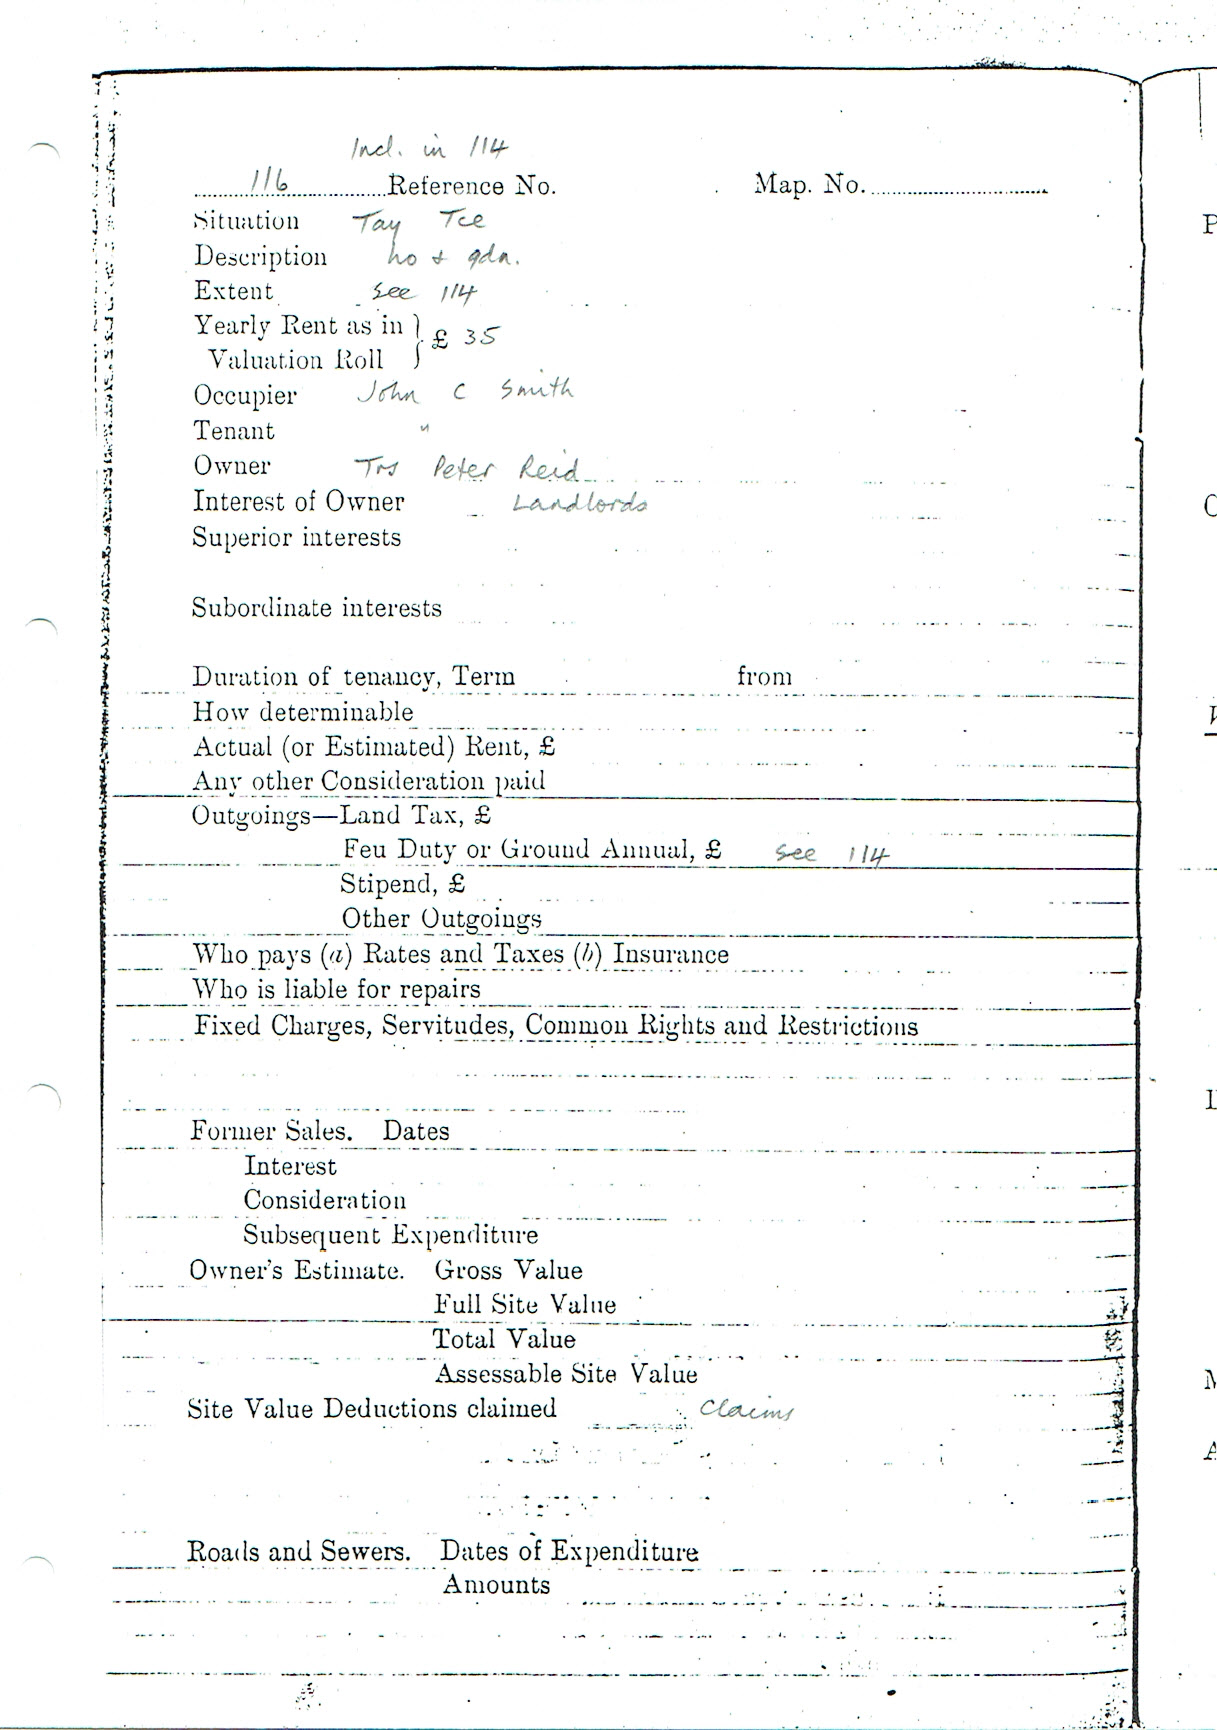 Incl. in 114
116 Reference No. Map. No.
Situation Tay Tce
Description ho + gdn.
Extent see 114
Yearly Rent as in } £ 35
Valuation Roll
Occupier John C Smith
Tenant "
Owner Trs Peter Reid
Interest of Owner Landlords
Superior interests
Subordinate interests
Duration of tenancy, Term from
How determinable
Actual (or Estimated) Rent, £
Any other Consideration paid
Outgoings—Land Tax, £
Feu Duty or Ground Annual, £ see 114
Stipend, £
Other Outgoings
Who pays (a) Rates and Taxes (b) Insurance
Who is liable for repairs
Fixed Charges, Servitudes, Common Rights and Restrictions
Former Sales. Dates
Interest
Consideration
Subsequent Expenditure
Owner's Estimate. Gross Value
Full Site Value
Total Value
Assessable Site Value
Site Value Deductions claimed Claims
Roads and Sewers. Dates of Expenditure
Amounts